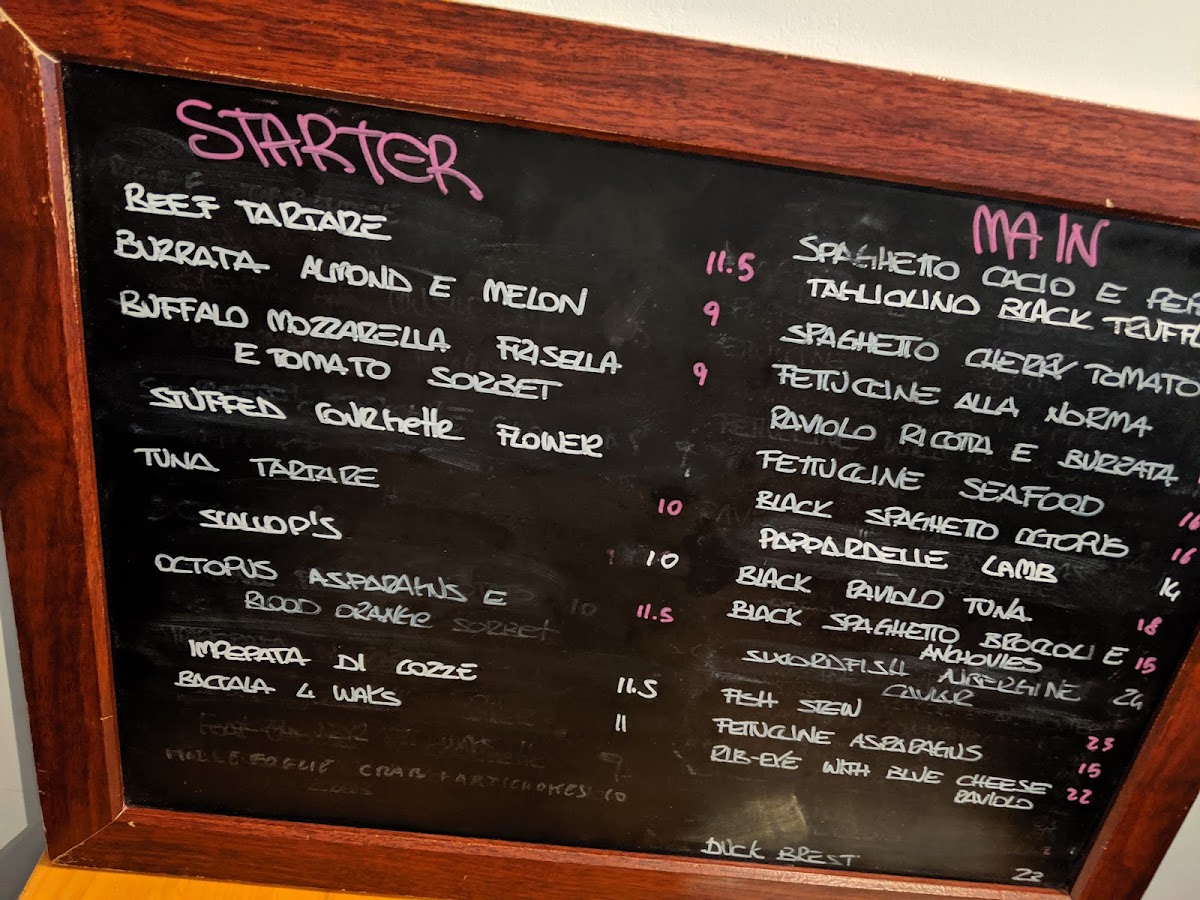 STARTER
BEEF TARTARE 11.5
BURRATA ALMOND E MELON 9
BUFFALO MOZZARELLA FRISELLA 9
E TOMATO SORBET
STUFFED COURGHETTE FLOWER
TUNA TARTARE 10
SCALLOP'S 10
OCTOPUS ASPARAGUS E 11.5
BLOOD ORANGE SORBET
IMPEPATA DI COZZE 11.5
BACCALA 4 WAKS 11
MILLEFOGLIE CRAB + ARTICHOKES 10
MAIN
SPAGHETTO CACIO E PEP
TAGLIOLINO BLACK TRUFFL
SPAGHETTO CHERRY TOMATO
FETTUCCINE ALLA NORMA
RAVIOLO RICOTTA E BURRATA
FETTUCCINE SEAFOOD 16
BLACK SPAGHETTO OCTOPUS 16
PAPPARDELLE LAMB 14
BLACK RAVIOLO TUNA 18
BLACK SPAGHETTO BROCCOLI E 15
ANCHOVIES
SWORDFISH AUBERGINE 24
CAVIAR
FISH STEW 23
FETTUCCINE ASPARAGUS 15
RIB-EYE WITH BLUE CHEESE 22
RAVIOLO
DUCK BREST 23